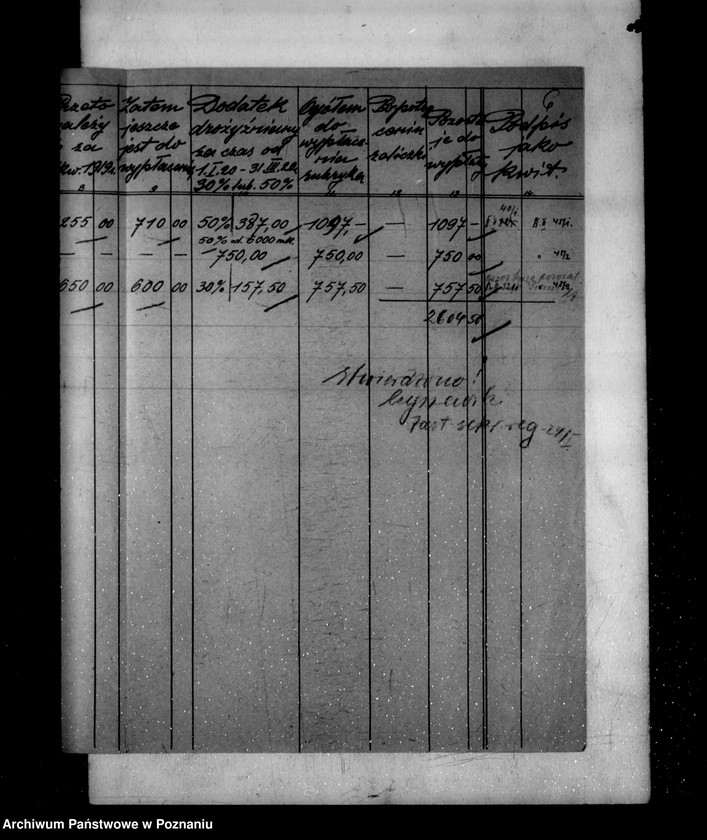 6
należy
za
kw. 1919r.
8
Zatem
jeszcze
jest do
wypłacenia
9
Dodatek
drożyźniany
za czas od
1.I.20 - 31.III.20
30% lub 50%
Ogółem
do
wypłace-
nia
rubryka
11
zaliczki
12
Pozosta
je do
wypłaty
13
Podpis
jako
kwit.
14
255 00 710 00 50% 387,00 1097,- — 1097 -
50% od 6000 mk.
— — — — 750,00 750,00 — 750 00
650 00 600 00 30% 157,50 757,50 — 757 50
2604 50
Stwierdzono!
Zast. sekr. reg.
Archiwum Państwowe w Poznaniu